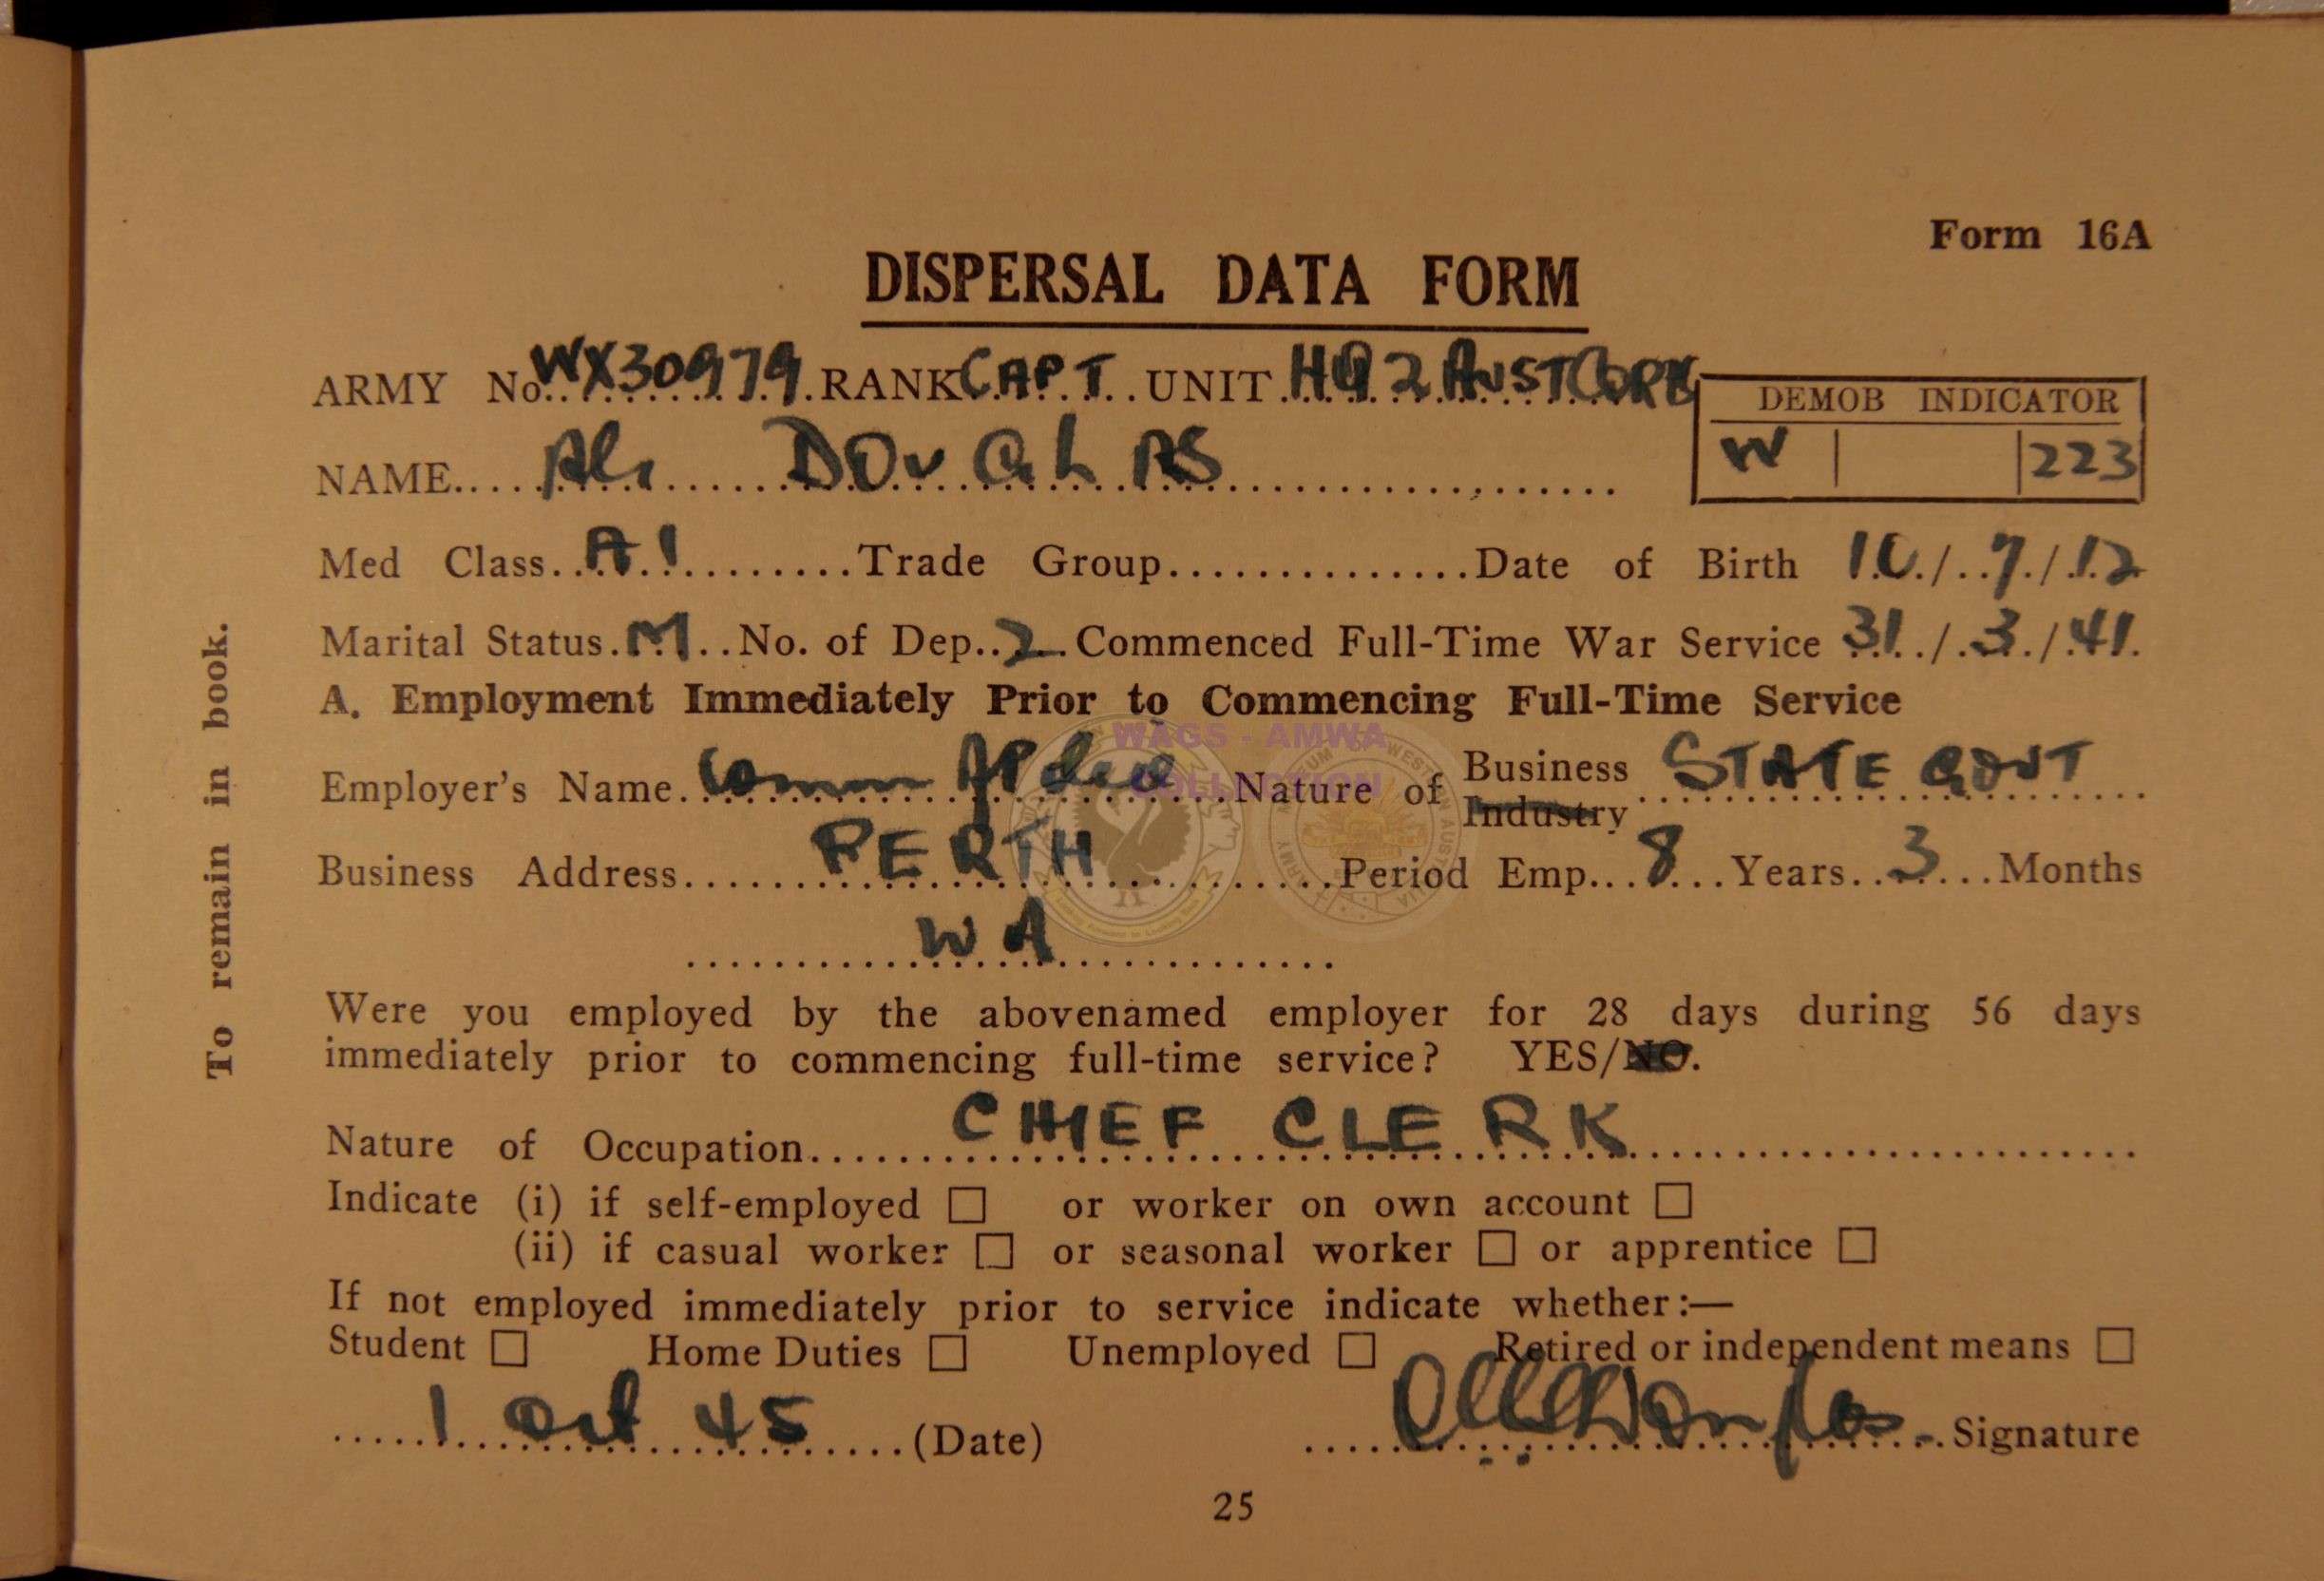 Form 16A
DISPERSAL DATA FORM
ARMY No. WX30979 RANK CAPT UNIT HQ 2 AUST CORPS
DEMOB INDICATOR
W 223
NAME DOUGLAS
Med Class A1 Trade Group Date of Birth 10/7/12
Marital Status M No. of Dep. 2 Commenced Full-Time War Service 31/3/41
A. Employment Immediately Prior to Commencing Full-Time Service
Employer's Name Nature of Business Industry STATE GOVT
Business Address PERTH Period Emp. 8 Years 3 Months
WA
Were you employed by the abovenamed employer for 28 days during 56 days
immediately prior to commencing full-time service? YES/NO.
Nature of Occupation CHIEF CLERK
Indicate (i) if self-employed □ or worker on own account □
(ii) if casual worker □ or seasonal worker □ or apprentice □
If not employed immediately prior to service indicate whether:—
Student □ Home Duties □ Unemployed □ Retired or independent means □
1 Oct 45 (Date) Signature
25
To remain in book.
WAGS - AMWA
COLLECTION